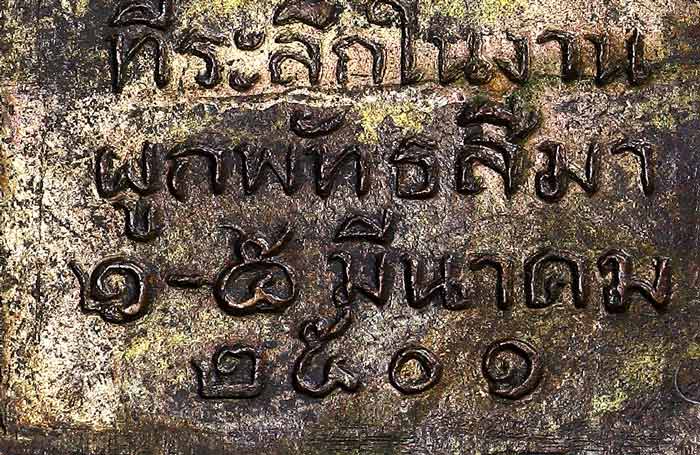 ที่ระลึกในงาน
ผูกพัทธสีมา
๑-๕ มีนาคม
๒๕๐๑